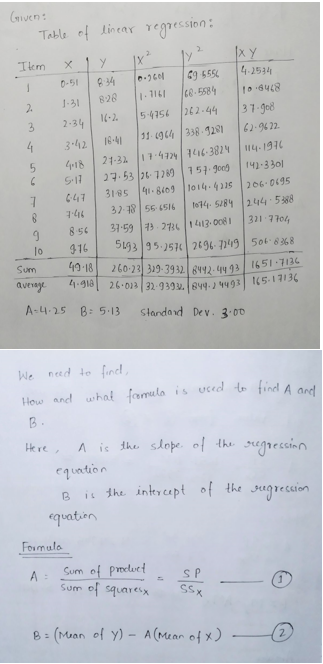 Given:
Table of linear regression:
Item X Y X² Y² XY
1 0.51 8.34 0.2601 69.5556 4.2534
2 1.31 8.28 1.7161 68.5584 10.8468
3 2.34 16.2 5.4756 262.44 37.908
4 3.42 18.41 11.6964 338.9281 62.9622
5 4.18 27.32 17.4724 746.3824 114.1976
6 5.17 27.53 26.7289 757.9009 142.3301
7 6.47 31.85 41.8609 1014.4225 206.0695
8 7.46 32.78 55.6516 1074.5284 244.5388
9 8.56 37.59 73.2736 1413.0081 321.7704
10 9.76 51.93 95.2576 2696.7249 506.8368
Sum 49.18 260.23 329.3932 8442.4493 1651.7136
average 4.918 26.023 32.93932 844.24493 165.17136
A=4.25 B=5.13 Standard Dev. 3.00
We need to find,
How and what formula is used to find A and
B.
Here, A is the slope of the regression
equation
B is the intercept of the regression
equation
Formula
A = Sum of product / Sum of squares x = SP / SSx — 1
B = (Mean of Y) - A(Mean of X) — 2